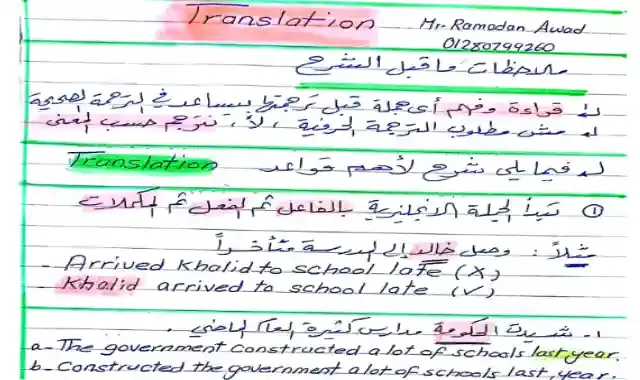 Translation
Mr. Ramadan Awad
01280799260
ملاحظات ما قبل الشرح
قراءة وفهم أى جملة قبل ترجمتها يساعد في الترجمة الصحيحة
مش مطلوب الترجمة الحرفية، لأ، نترجم حسب المعنى
فيما يلى شرح لأهم قواعد Translation
① تبدأ الجملة الانجليزية بالفاعل ثم الفعل ثم المكملات
مثلاً : وصل خالد إلى المدرسة متأخراً
- Arrived Khalid to school late (X)
- Khalid arrived to school late (√)
١- شيدت الحكومة مدارس كثيرة العام الماضي .
a- The government constructed a lot of schools last year.
b- Constructed the government a lot of schools last year.